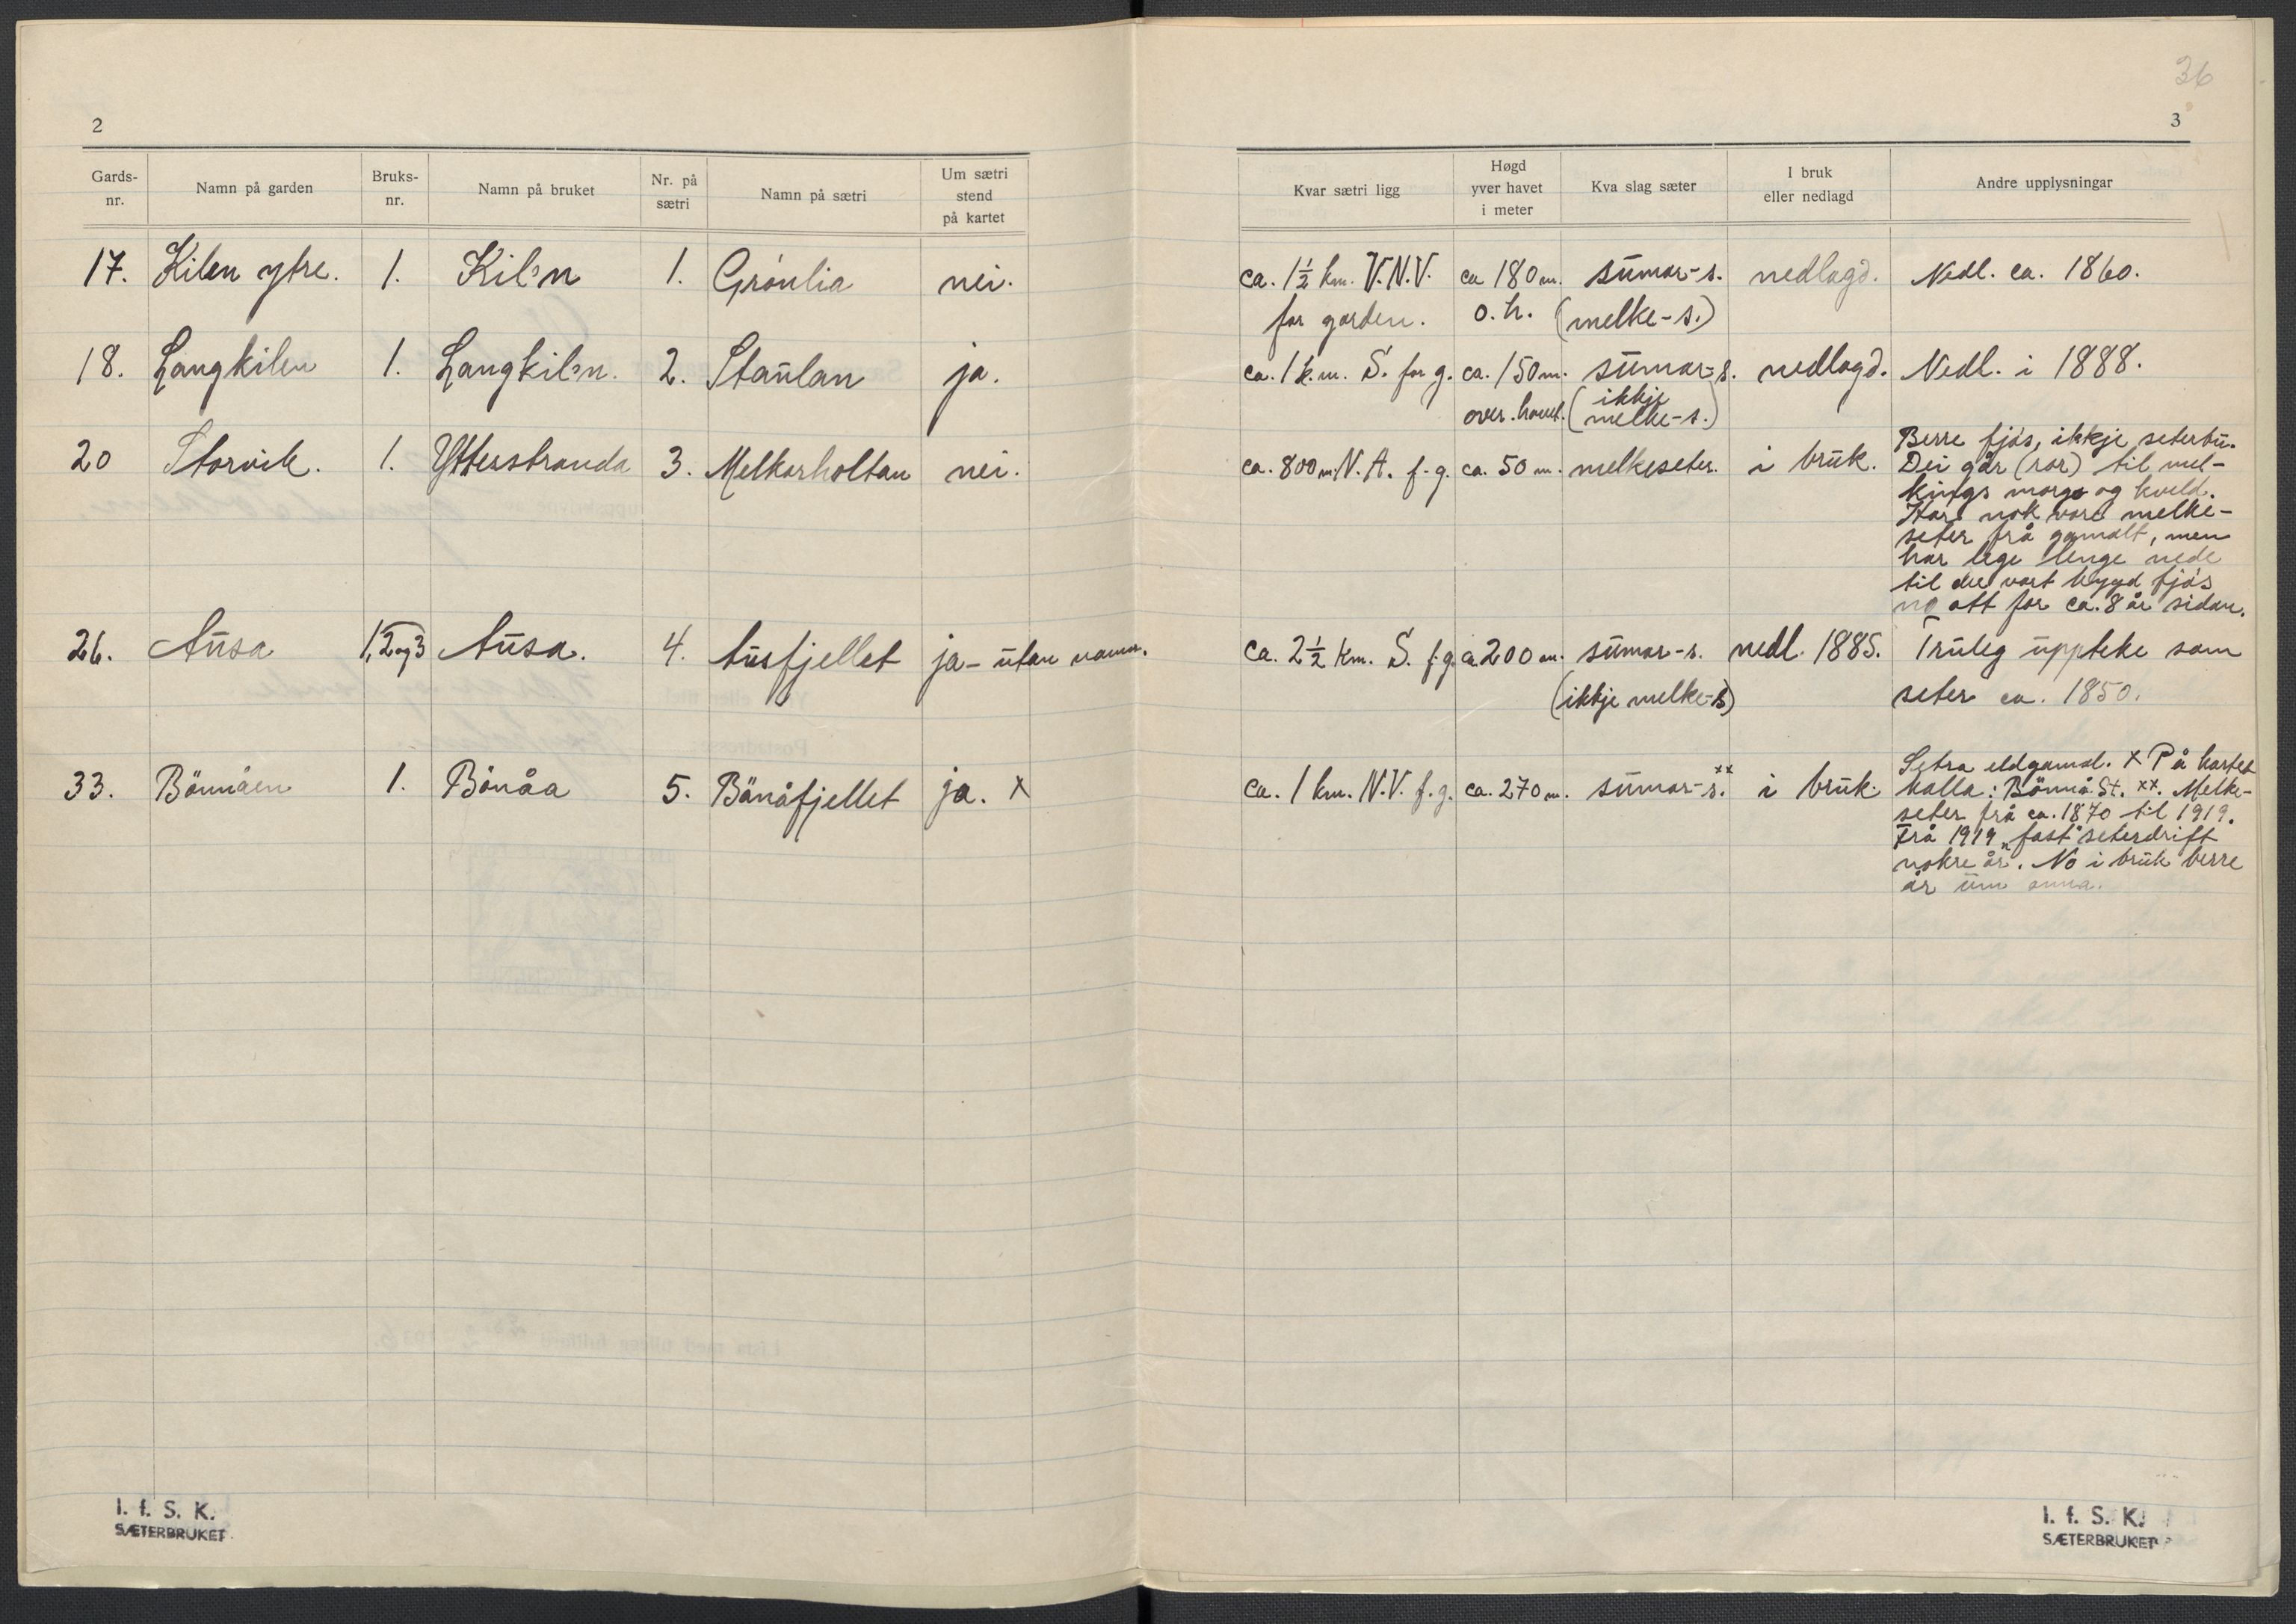 36
2
3
Gards-nr. Namn på garden Bruks-nr. Namn på bruket Nr. på sætri Namn på sætri Um sætri stend på kartet
Kvar sætri ligg Høgd yver havet i meter Kva slag sæter I bruk eller nedlagd Andre upplysningar
17. Kilen ytre. 1. Kil'n 1. Grønlia nei. ca. 1½ km. V.N.V. ca 180 m. sumar-s. nedlagd. Nedl. ca. 1860.
for garden. o.h. (melke-s.)
18. Langkilen 1. Langkil'n. 2. Staulan ja. ca. 1 k.m. S. for g. ca. 150 m. sumar-s. nedlagd. Nedl. i 1888.
over havet. (ikkje
melke-s.)
20 Storvik. 1. Ytterstranda 3. Melkarholtan nei. ca. 800 m. N.A. f.g. ca. 50 m. melkeseter. i bruk.
Berre fjøs, ikkje seterbu.
Dei går (ror) til mel-
kings morgo og kveld.
Har nok vore melke-
seter frå gamalt, men
har lege lenge nede
til der vart bygd fjøs
no att for ca. 8 år sidan.
26. Ausa 1, 2 og 3 Ausa. 4. Ausfjellet ja - utan namn. ca. 2½ km. S. f.g. ca 200 m. sumar-s. nedl. 1885. Truleg uppteke som
(ikkje melke-s) seter ca. 1850.
33. Bönnåen 1. Bönåa 5. Bönåfjellet ja. x ca. 1 km. N.V. f.g. ca. 270 m. sumar-s. xx i bruk.
Setra eldgamal. x På kartet
kalla: Bönnå St. xx. Melke-
seter frå ca. 1870 til 1919.
Frå 1919 „fast" seterdrift
nokre år. No i bruk berre
år um anna.
I. f. S. K.
SÆTERBRUKET
I. f. S. K.
SÆTERBRUKET